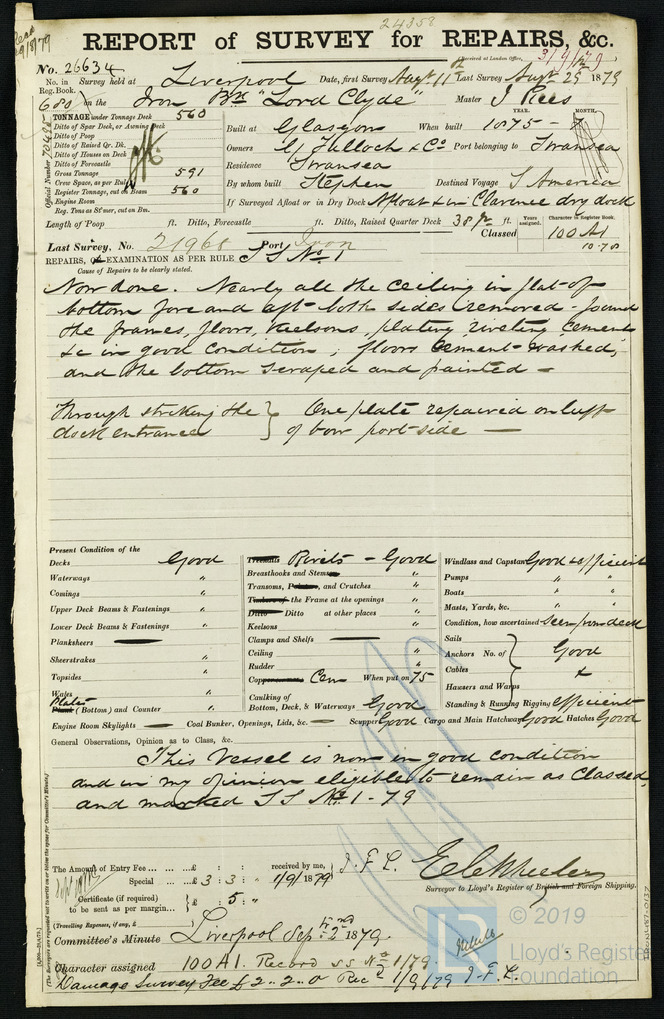 24358
REPORT of SURVEY for REPAIRS, &c.
Received at London Office,
No. 26634 Survey held at Liverpool Date, first Survey Augt 11th Last Survey Augt 25 1879
No. in Reg. Book.
680 on the Iron Bk "Lord Clyde" Master J Rees
TONNAGE under Tonnage Deck 560
Ditto of Spar Deck, or Awning Deck
Ditto of Poop
Ditto of Raised Qr. Dk.
Ditto of Houses on Deck
Ditto of Forecastle
Gross Tonnage 591
Crew Space, as per Rule
Register Tonnage, cut on Beam 560
Engine Room
Reg. Tons as St'mer, cut on Bm.
Official Number
YEAR. MONTH.
Built at Glasgow When built 1875 - 7
Owners G Tulloch & Co Port belonging to Swansea
Residence Swansea
By whom built Stephen Destined Voyage S America
If Surveyed Afloat or in Dry Dock Afloat & in Clarence dry dock
Length of Poop ft. Ditto, Forecastle ft. Ditto, Raised Quarter Deck 38 ft. Years assigned. Character in Register Book.
Last Survey, No. 21968 Port Iron Classed 100 A1
10.78
REPAIRS, OR EXAMINATION AS PER RULE S S No 1
Cause of Repairs to be clearly stated.
Now done. Nearly all the ceiling in flat of
bottom fore and aft both sides removed - found
the frames, floors, keelsons, plating, riveting cement
&c in good condition; floors cement washed,
and the bottom scraped and painted -
Through striking the } One plate repaired on luff
dock entrance } of bow port side -
Present Condition of the
Decks Good
Waterways "
Comings "
Upper Deck Beams & Fastenings "
Lower Deck Beams & Fastenings "
Planksheers
Sheerstrakes "
Topsides "
Wales "
Plates (Bottom) and Counter "
Rivets - Good
Breasthooks and Stems "
Transoms, Pointers, and Crutches "
Timbers of the Frame at the openings "
Ditto Ditto at other places "
Keelsons "
Clamps and Shelfs
Ceiling "
Rudder "
Cem When put on 75
Caulking of
Bottom, Deck, & Waterways Good
Windlass and Capstan Good & efficient
Pumps " "
Boats " "
Masts, Yards, &c. " "
Condition, how ascertained seen from deck
Sails
Anchors No. of Good
Cables &
Hausers and Warps
Standing & Running Rigging efficient
Engine Room Skylights Coal Bunker, Openings, Lids, &c. Scupper Good Cargo and Main Hatchway Good Hatches Good
General Observations, Opinion as to Class, &c.
This Vessel is now in good condition
and in my opinion eligible to remain as Classed,
and marked S S No 1 - 79
The Amount of Entry Fee ... £ : : received by me,
Special ... £ 3 : 3 : " 1/9/1879 J.F.L.
Certificate (if required) £ : 5 : "
to be sent as per margin...
(Travelling Expenses, if any, £ )
E C Wheeler
Surveyor to Lloyd's Register of British and Foreign Shipping.
Committee's Minute Liverpool Sep 2nd 1879.
Character assigned 100 A1. Record S S No 1/79
Damage Survey Fee £2..2..0 Rec 1/9/79 J.F.L.
© 2019
Lloyd's Register
Foundation